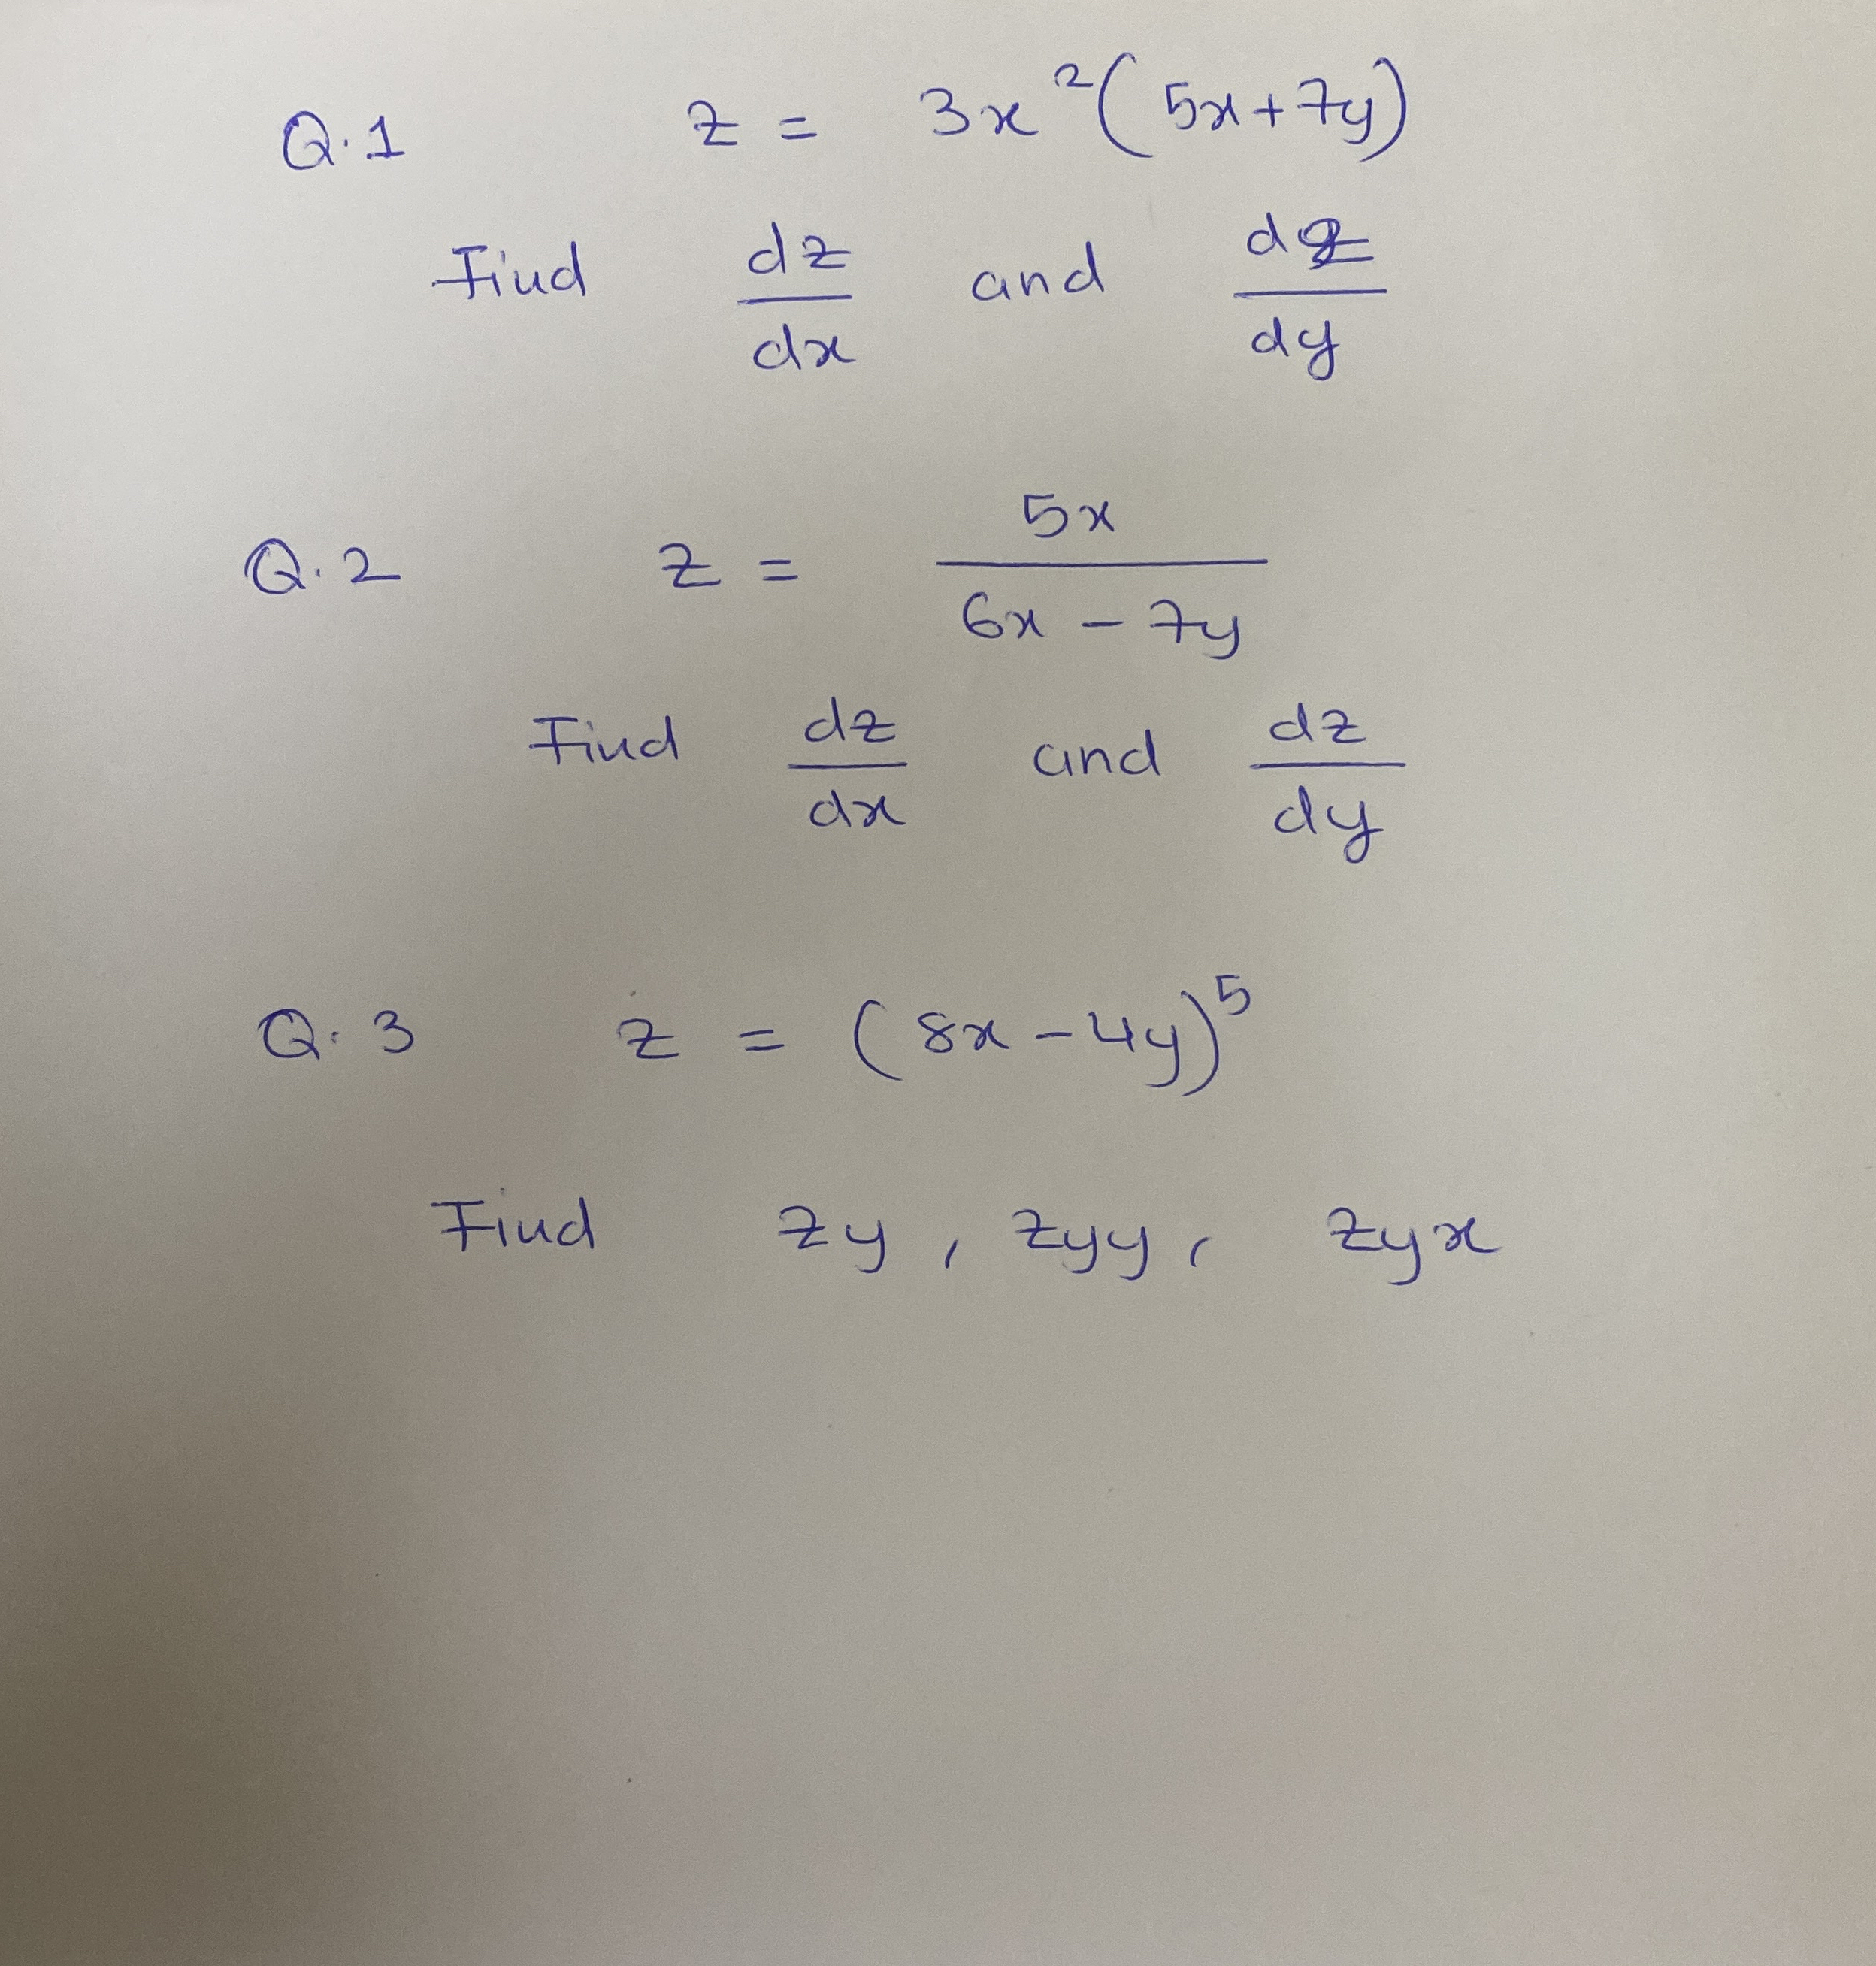 Q.1 z = 3x²(5x+7y)
Find dz/dx and dz/dy
Q.2 z = 5x/(6x - 7y)
Find dz/dx and dz/dy
Q.3 z = (8x-4y)⁵
Find zy, zyy, zyx